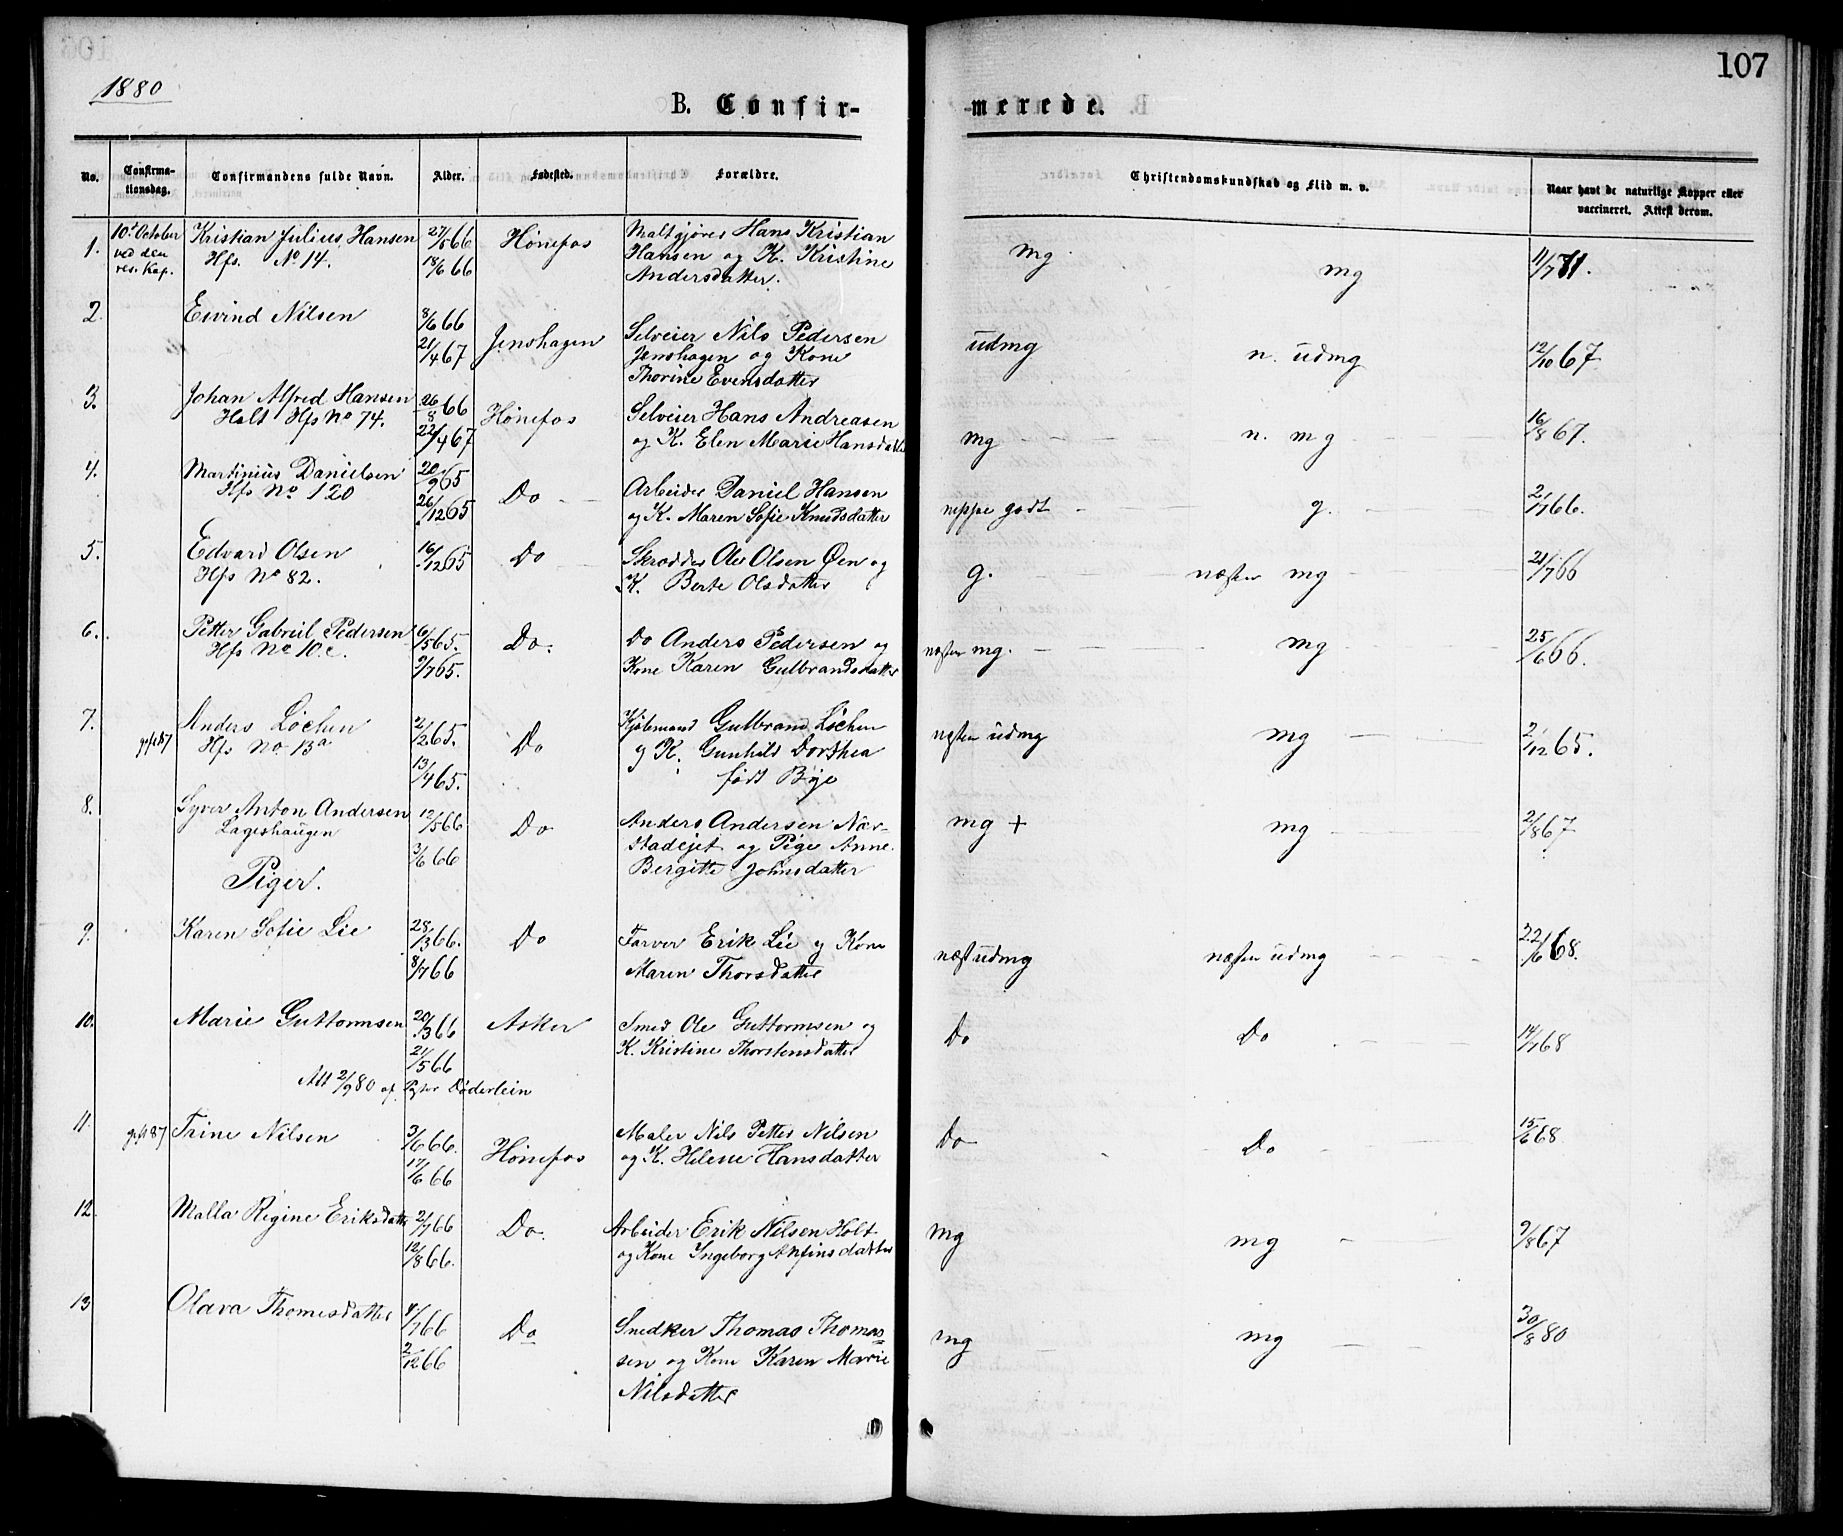 107
1880
B. Confir-
-merede.
No.
Confirma-
tionsdag.
Confirmandens fulde Navn.
Alder.
Fødested.
Forældre.
Christendomskundskab og Flid m. v.
Naar havt de naturlige Kopper eller
vaccineret. Attest derom.
1. 10de October Kristian Julius Hansen 27/5 66 Hønefos Maltgjører Hans Kristian mg mg 11/7 71.
ved den Hfs. No 14. 18/6 66 Hansen og K. Kristine
res. Kap. Andersdatter.
2. Eivind Nilsen 8/6 66 Jenshagen Selveier Nils Pedersen udmg n. udmg 12/10 67
21/4 67 Jenshagen og Kone
Thorine Evensdatter
3. Johan Alfred Hansen 26/8 66 Hønefos Selveier Hans Andreasen mg n. mg 16/8 67.
Holt Hfs No 74. 22/4 67 og K. Elen Marie Hansdatter
4. Martinius Danielsen 20/9 65 Do Arbeider Daniel Hansen neppe godt g. 2/7 66.
Hfs No 120 26/12 65 og K. Maren Sofie Knudsdatter
5. Edvard Olsen 16/12 65 Do Skrædder Ole Olsen Øen og g. næsten mg 21/7 66
Hfs No 82. K. Berte Olsdatter
6. Petter Gabriel Pedersen 16/5 65. Do. Do Anders Pedersen og næsten mg. mg 25/6 66.
Hfs No 10.c. 9/7 65. Kone Karen Gulbrandsdatter
7. Anders Løchen 2/2 65. Do Kjøbmand Gulbrand Løchen næsten udmg mg 2/12 65.
gift 87 Hfs No 13a 13/4 65. og K. Gunhild Dorthea
født Bøje
8. Syver Anton Andersen 12/5 66 Do Anders Andersen Nær- mg + mg 2/8 67
Lageshaugen 3/6 66 stadejet og Pige Anne
Piger. Bergitte Johnsdatter
9. Karen Sofie Lie 28/3 66. Do Farver Erik Lie og Kone næst udmg næsten udmg 22/6 68.
8/7 66 Maren Thorsdatter
10. Marie Guttormsen 20/3 66 Asker Smed Ole Guttormsen og Do Do 14/7 68
21/5 66 K. Kristine Thorstensdatter
Att 2/9 80 af Pastor Døderlein
11. gift 87 Trine Nilsen 3/6 66. Hønefos Maler Nils Petter Nilsen Do Do 15/6 68
17/6 66 og K. Helene Hansdatter
12. Malla Regine Eriksdatter 2/7 66 Do. Arbeider Erik Nilsen Holt mg mg 9/8 67
12/8 66. og Kone Ingeborg Arfinsdatter
13 Olava Thomesdatter 4/7 66 Do Snedker Thomas Thomas- mg mg 30/8 80
2/12 66 sen og Kone Karen Marie
Nilsdatter